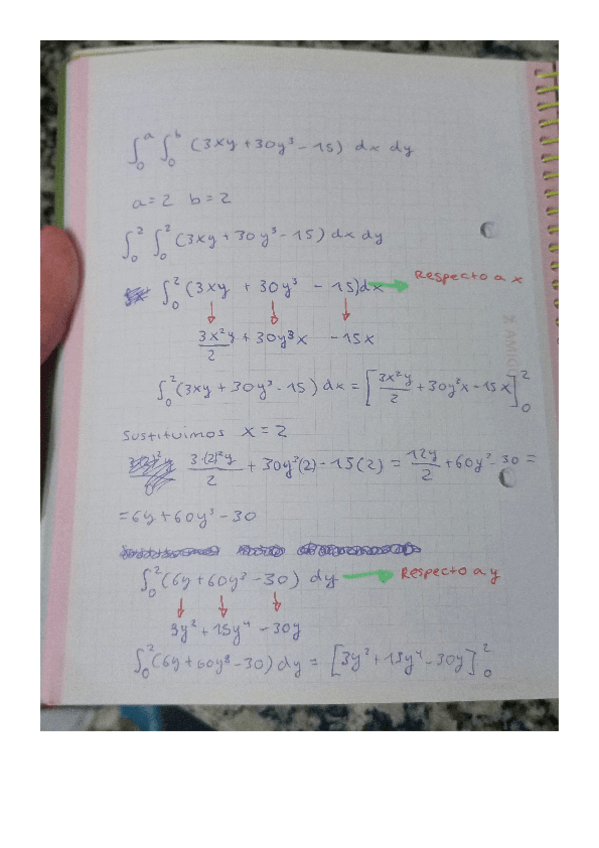 ∫₀ᵃ ∫₀ᵇ (3xy + 30y³ - 15) dx dy
a = 2 b = 2
∫₀² ∫₀² (3xy + 30y³ - 15) dx dy
∫₀² (3xy + 30y³ - 15) dx → Respecto a x
3x²y/2 + 30y³x - 15x
∫₀² (3xy + 30y³ - 15) dx = [3x²y/2 + 30y³x - 15x]₀²
Sustituimos x = 2
3·(2)²y/2 + 30y³(2) - 15(2) = 12y/2 + 60y³ - 30 =
= 6y + 60y³ - 30
∫₀² (6y + 60y³ - 30) dy → Respecto a y
3y² + 15y⁴ - 30y
∫₀² (6y + 60y³ - 30) dy = [3y² + 15y⁴ - 30y]₀²